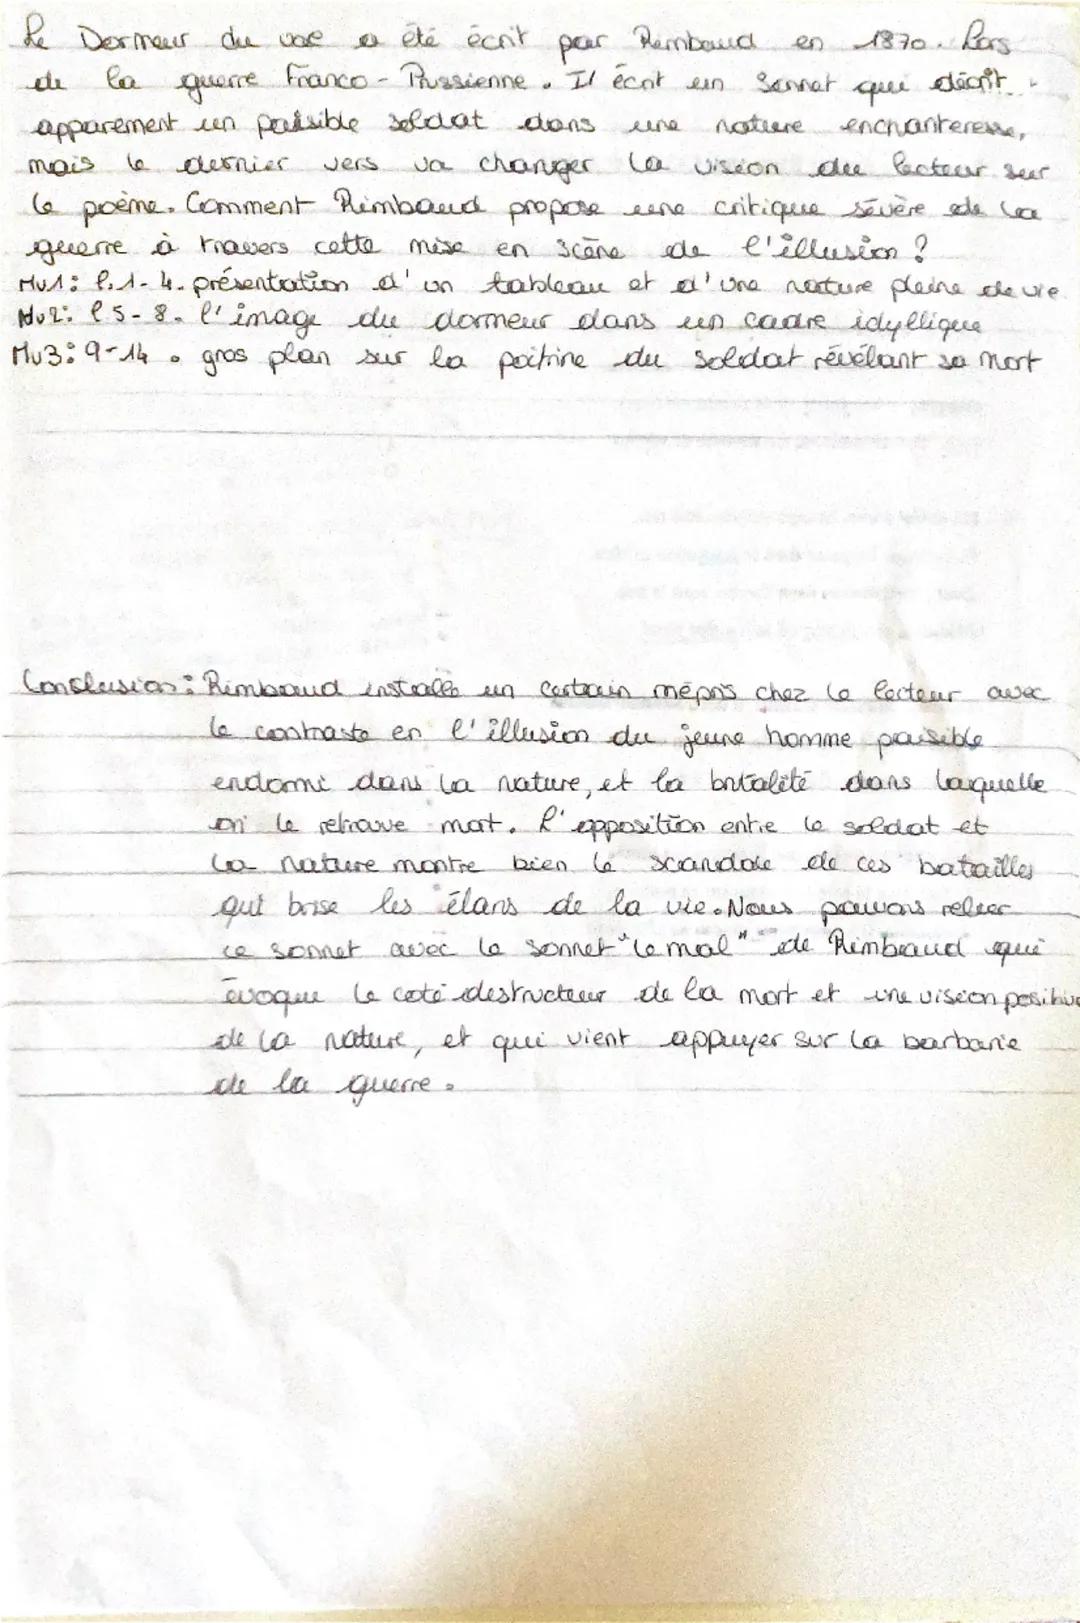 Le Dormeur du val a été écrit par Rimbaud en 1870. Lors
de la guerre Franco-Prussienne. Il écrit un Sonnet qui décrit
apparement un paisible soldat dans une nature enchanteresse,
mais le dernier vers va changer la vision du lecteur sur
le poème. Comment Rimbaud propose une critique sévère de la
guerre à travers cette mise en scène de l'illusion ?
Mv1: l.1-4. présentation d'un tableau et d'une nature pleine de vie
Mv2: l5-8. l'image du dormeur dans un cadre idyllique
Mv3: 9-14. gros plan sur la poitrine du soldat révélant sa mort
Conclusion: Rimbaud installe un certain mépris chez le lecteur avec
le contraste en l'illusion du jeune homme paisible
endormi dans la nature, et la brutalité dans laquelle
on le retrouve mort. L'opposition entre le soldat et
la nature montre bien le scandale de ces batailles
qui brise les élans de la vie. Nous pouvons relier
ce sonnet avec le sonnet "le mal" de Rimbaud qui
évoque le coté destructeur de la mort et une vision positive
de la nature, et qui vient appuyer sur la barbarie
de la guerre.